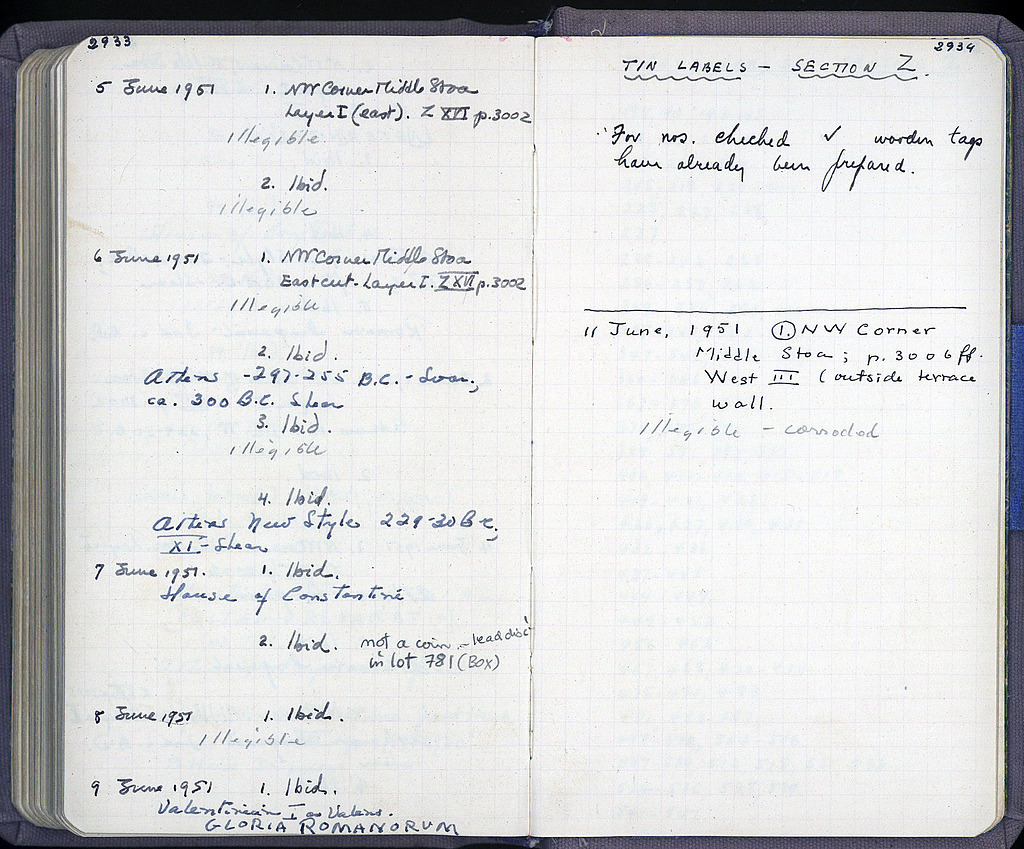 2933
5 June 1951 1. NW Corner Middle Stoa
Layer I (east). Z XVI p.3002
Illegible
2. Ibid.
Illegible
6 June 1951 1. NW Corner Middle Stoa
East cut - Layer I. Z XVI p.3002
Illegible
2. Ibid.
Athens -297-255 B.C. - Svor.;
ca. 300 B.C. Shear
3. Ibid.
illegible
4. Ibid.
Athens New Style 229-30 B.C.;
XI - Shear
7 June 1951. 1. Ibid.
House of Constantine
2. Ibid. not a coin - lead disc
in lot 781 (BOX)
8 June 1951 1. Ibid.
Illegible
9 June 1951 1. Ibid.
Valentinian I or Valens.
GLORIA ROMANORUM
2934
TIN LABELS - SECTION Z.
For nos. checked ✓ wooden tags
have already been prepared.
11 June, 1951 ① NW Corner
Middle Stoa; p. 3006 ff.
West III (outside terrace
wall.
Illegible - corroded